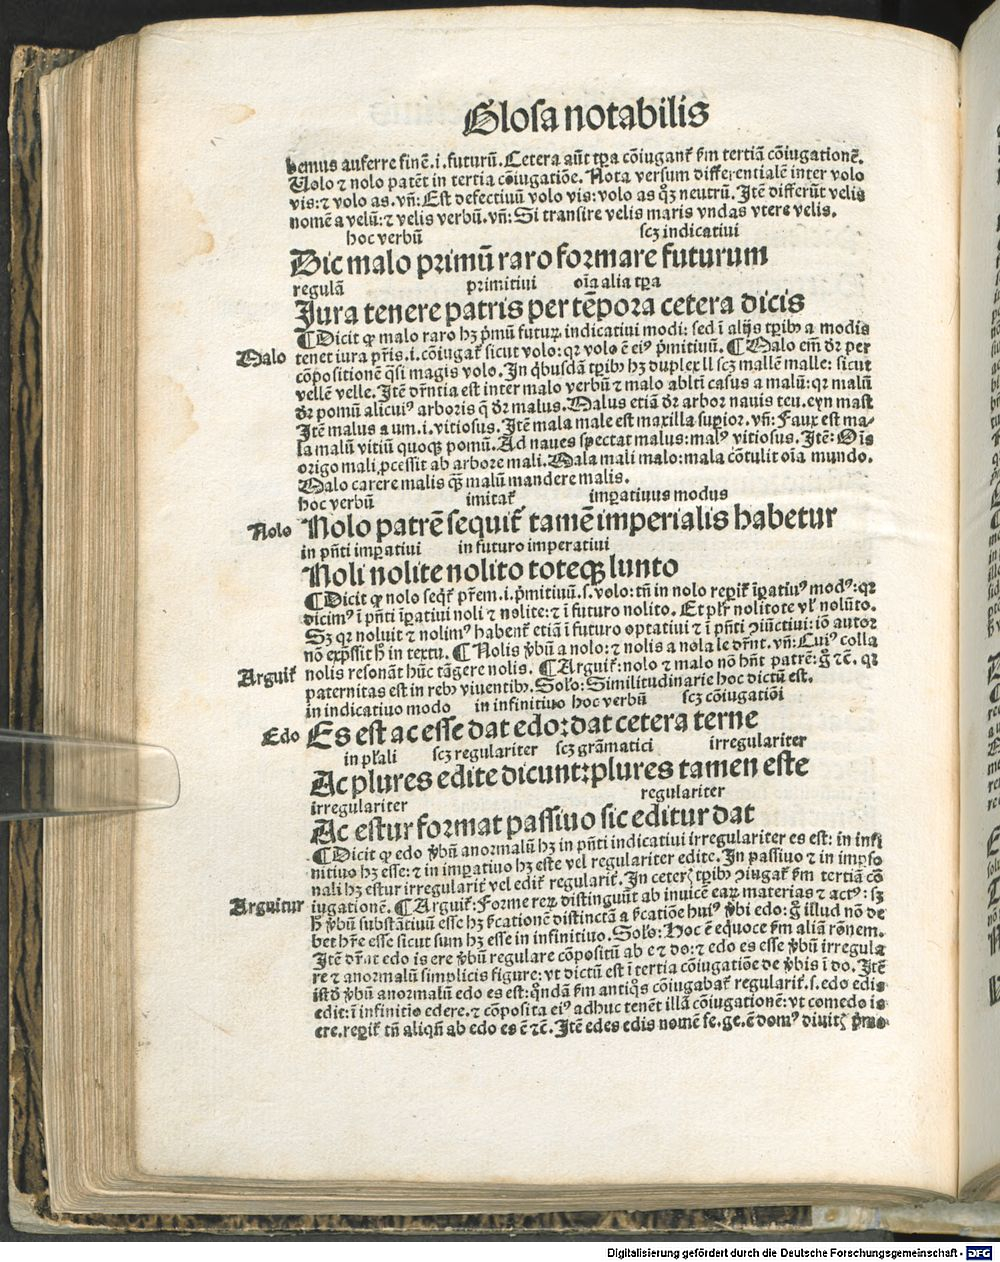 Glosa notabilis
bemus auferre finē.i.futurū. Cetera aūt tꝑa cōiugant᷑ ẜm tertiā cōiugationē.
Uolo ⁊ nolo patēt in tertia cōiugatiōe. Nota versum differentialē inter volo
vis: ⁊ volo as. vñ: Est defectiuū volo vis: volo as qꝫ neutrū. Itē differūt velis
nomē a velū: ⁊ velis verbū. vñ: Si transire velis maris vndas vtere velis.
hoc verbū scꝫ indicatiui
Dic malo primū raro formare futurum
regulā primitiui oīa alia tꝑa
Iura tenere patris per tēpora cetera dicis
¶ Dicit ꝙ malo raro hꝫ p̄mū futuꝝ indicatiui modi: sed ī alijs tꝑibꝰ a modis
Malo
tenet iura pr̄is.i.cōiugat᷑ sicut volo: qꝛ volo ē eiꝰ p̄mitiuū. ¶ Malo em̄ dr̄ per
cōpositionē q̄si magis volo. In qbusdā tꝑibꝰ hꝫ duplex ll scꝫ mallē malle: sicut
vellē velle. Itē dr̄ntia est inter malo verbū ⁊ malo ablti casus a malū: qꝛ malū
dr̄ pomū alicuiꝰ arboris q̄ dr̄ malus. Malus etiā dr̄ arbor nauis teu. eyn mast
Itē malus a um.i.vitiosus. Itē mala male est maxilla supior. vñ: Faux est ma-
la malū vitiū quoqꝫ pomū. Ad naues spectat malus: malꝰ vitiosus. Itē: Oīs
origo mali ꝓcessit ab arbore mali. Mala mali malo: mala cōtulit oīa mundo.
Malo carere malis qꝫ malū mandere malis.
hoc verbū imitat᷑ imꝑatiuus modus
Nolo
Nolo patrē sequit᷑ tamē imperialis habetur
in pñti imꝑatiui in futuro imperatiui
Noli nolite nolito toteqꝫ lunto
¶ Dicit ꝙ nolo seqt᷑ pr̄em.i.p̄mitiuū.s.volo: tñ in nolo reꝑit᷑ īꝑatiuꝰ modꝰ: qꝛ
dicimꝰ ī pñti īꝑatiui noli ⁊ nolite: ⁊ ī futuro nolito. Et plr̄ nolitote vl nolūto.
Sꝫ qꝛ noluit ⁊ nolimꝰ habent᷑ etiā ī futuro optatiui ⁊ ī pñti ꝯiūctiui: iō autor
nō exp̄ssit ꝧ in textu. ¶ Nolis v̄bū a nolo: ⁊ nolis a nola le dr̄nt. vñ: Cuiꝰ colla
nolis resonāt hūc tāgere nolis. ¶ Arguit᷑: nolo ⁊ malo nō hn̄t patrē: gͦ ⁊c̄. qꝛ
Arguit᷑
paternitas est in rebꝰ viuentibꝰ. Solo: Similitudinarie hoc dictū est.
in indicatiuo modo in infinitiuo hoc verbū scꝫ cōiugatiōi
Edo
Es est ac esse dat edo: dat cetera terne
in plali scꝫ regulariter scꝫ grāmatici irregulariter
Ac plures edite dicunt: plures tamen este
irregulariter regulariter
Ac estur format passiuo sic editur dat
¶ Dicit ꝙ edo v̄bū anormalū hꝫ in pñti indicatiui irregulariter es est: in infi
nitiuo hꝫ esse: ⁊ in imꝑatiuo hꝫ este vel regulariter edite. In passiuo ⁊ in imꝑso
nali hꝫ estur irregularit᷑ vel edit᷑ regularit᷑. In ceteꝭ tꝑibꝰ ꝯiugat᷑ ẜm tertiā cō
Arguitur
iugationē. ¶ Arguit᷑: Forme reꝝ distinguūt ab inuicē eaꝝ materias ⁊ actꝰ: sꝫ
ꝧ v̄bū substātiuū esse hꝫ p̄icationē distinctā a p̄icatiōe huiꝰ v̄bi edo: gͦ illud nō de
bet hr̄e esse sicut sum hꝫ esse in infinitiuo. Solo: Hoc ē equoce ẜm aliā rōnem.
Itē dr̄at edo is ere v̄bū regulare cōpositū ab e ⁊ do: ⁊ edo es esse v̄bū irregula
re ⁊ anormalū simplicis figure: vt dictū est ī tertia cōiugatiōe de v̄bis ī do. Itē
istd v̄bū anormalū edo es est: qn̄dā ẜm antiqs cōiugabat᷑ regularit᷑.s.edo edis
edit: ī infinitio edere. ⁊ cōposita eiꝰ adhuc tenēt illā cōiugationē: vt comedo is
ere. reꝑit᷑ tñ aliqn̄ ab edo es ē ⁊c̄. Itē edes edis nomē fe. ge. ē domꝰ diuitꝭ
Digitalisierung gefördert durch die Deutsche Forschungsgemeinschaft - DFG